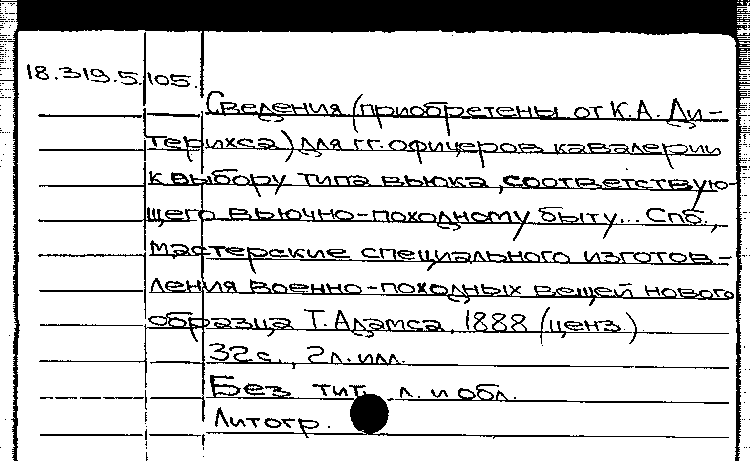 18.319.5.105.
Сведения (приобретены от К.А. Ди-
терихса) для гг. офицеров кавалерии
к выбору типа вьюка, соответствую-
щего вьючно-походному быту... Спб.,
мастерские специального изготов-
ления военно-походных вещей нового
образца Т. Адамса, 1888 (ценз.)
32 с., 2 л. илл.
Без тит. л. и обл.
Литогр.